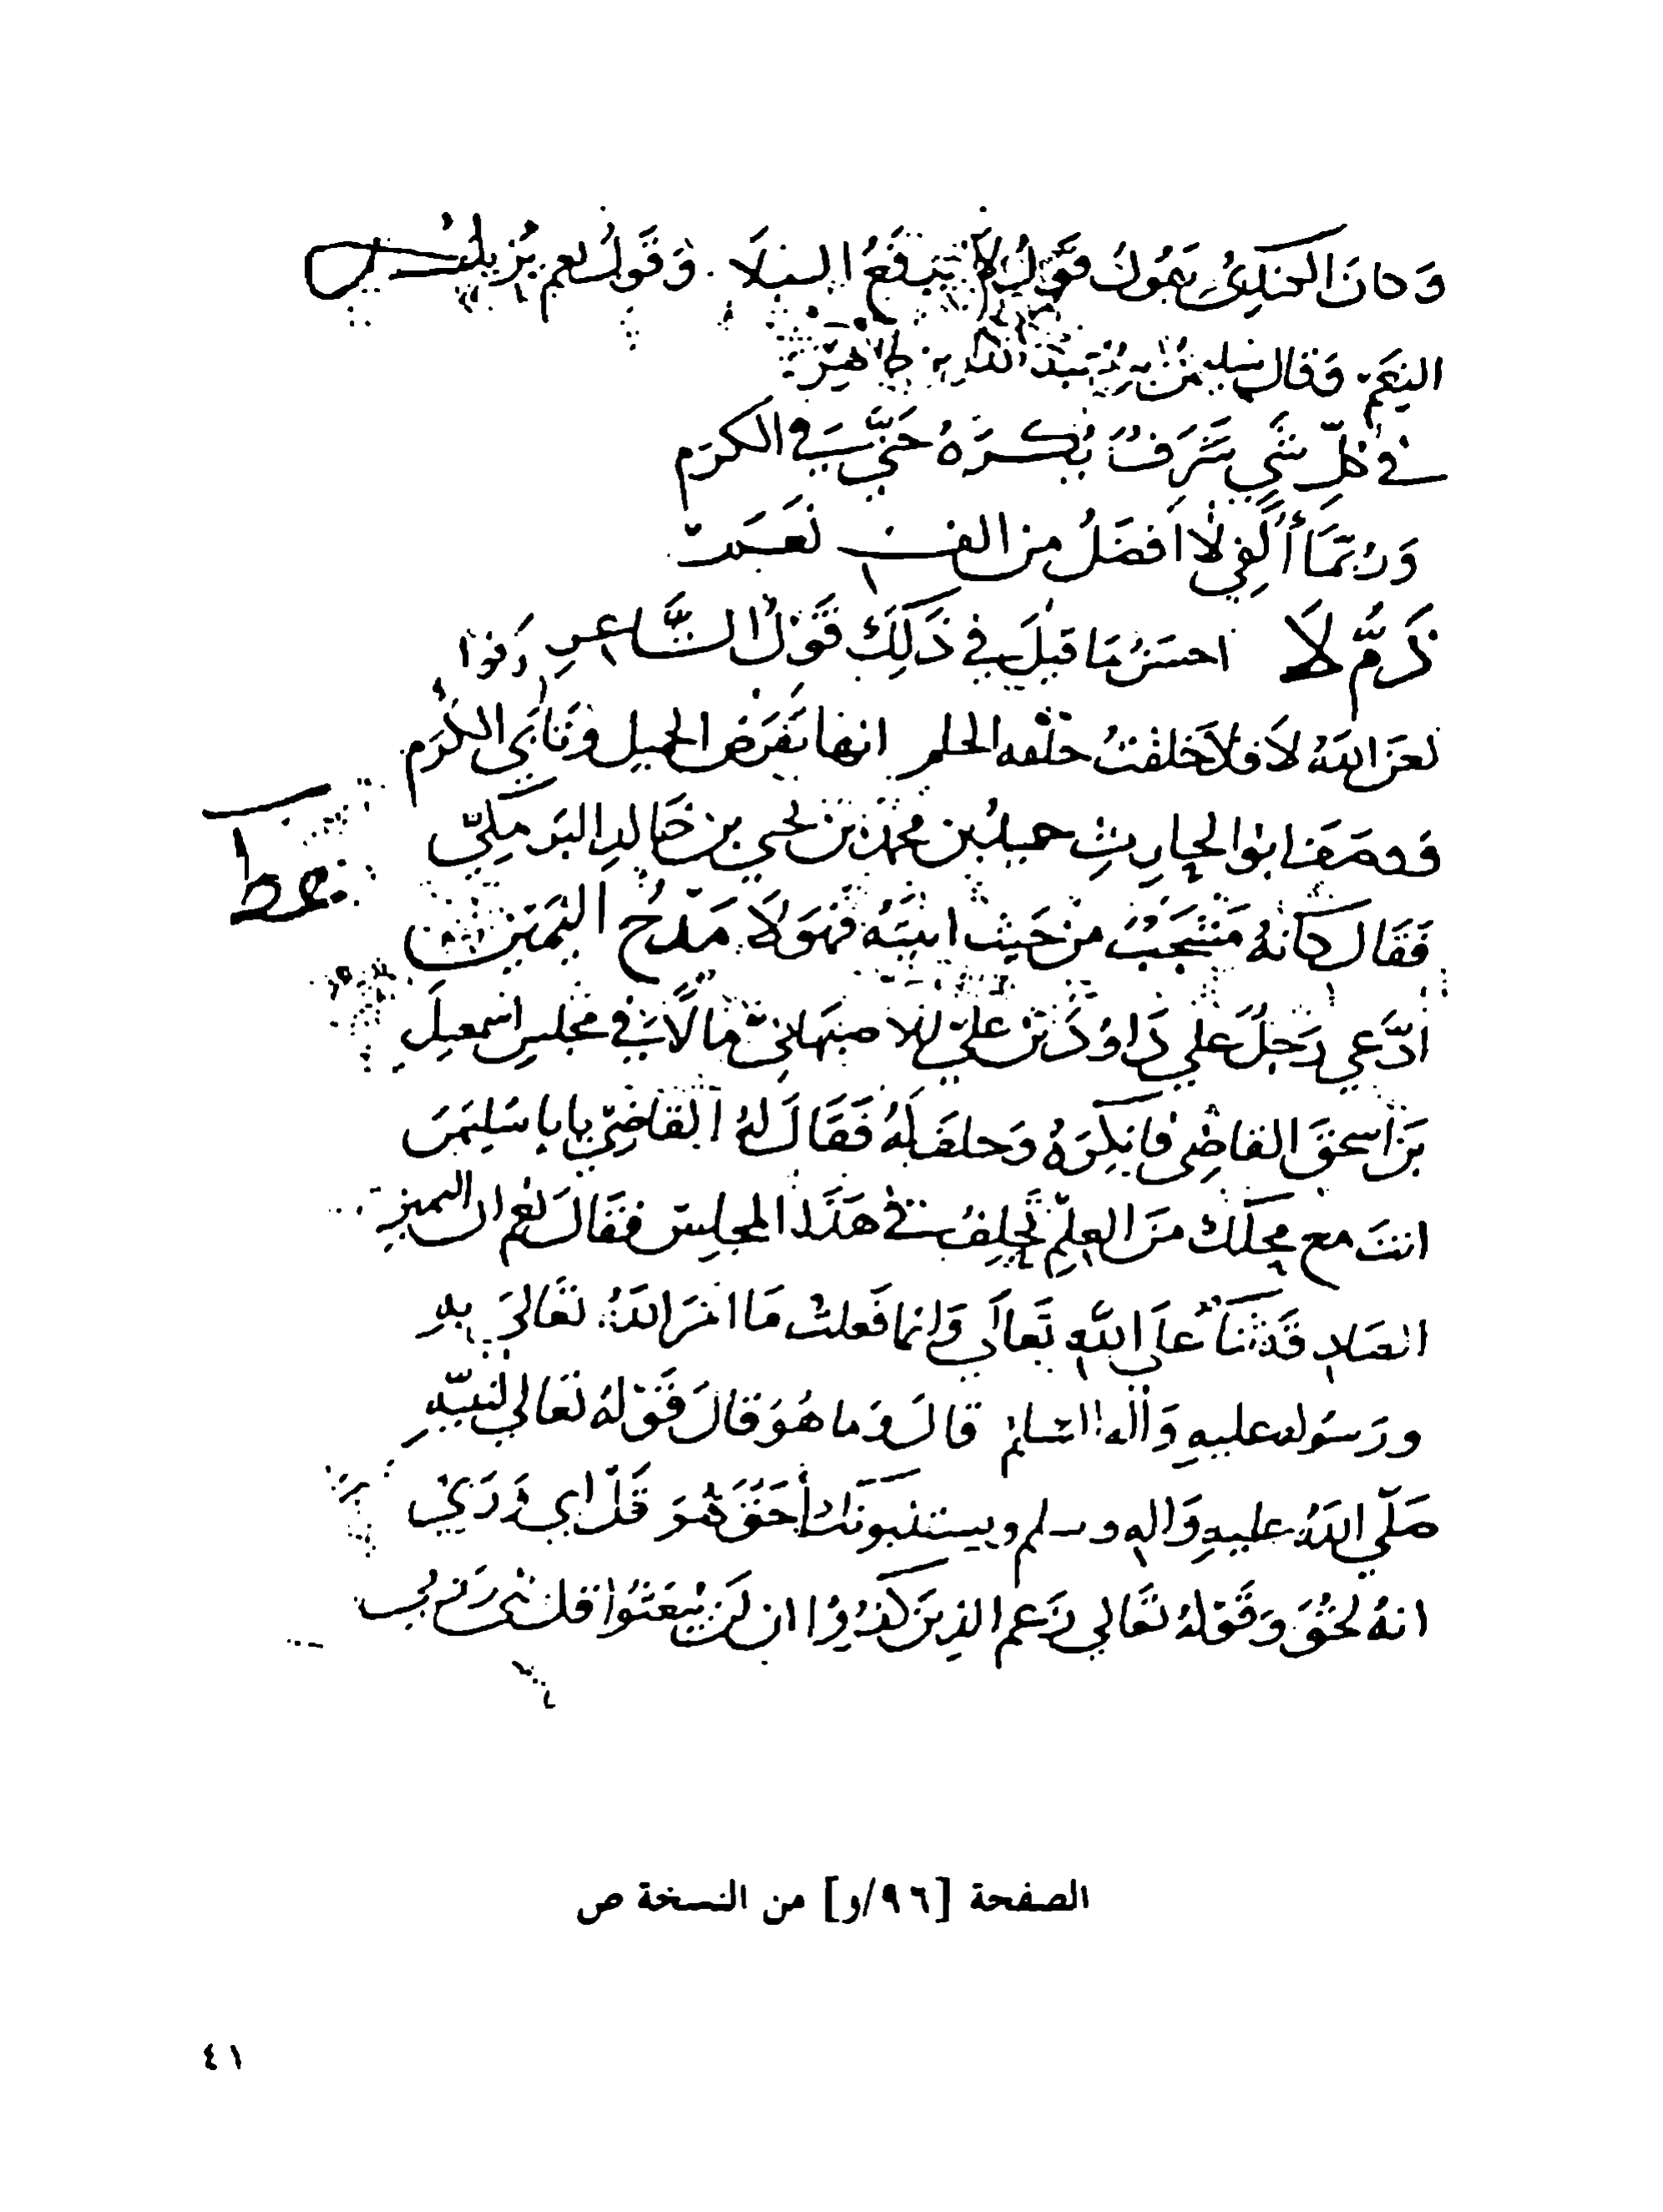 وَكانَ الكندِيُّ يَقُولُ قَوْلُ لَا يَدفَعُ البَلَا . وَقَوْلُ نعم يُزيلُ
النِعَم وَقَال سليمن بن عَبدُ الله بن طاهر
في كلّ شَيٍ سَرَفٌ يُكرَهُ حَتَّى في الكرَم
وَرُبَّمَا أُلفِي لَا افضَلُ من الف نَعَم
ذَمُّ لَا احسَنُ مَا قيلَ في ذَلِكَ قَوْلُ الشَّاعِرِ
لعَنَ اللهُ لَا فلَا خلقتْ خلقه الحلم انها تَقرض الجميل وَتَأبَى الكَرَم
وَوصَفَ ابوا الحارِثِ حميدُ بن محمد بن يحيي بن خَالدِ البَرمَكِيّ
فَقَال كانهُ مِن حَيثُ اتيتَهُ فهَوَ لَا مَدْحُ اليَمين
ادَّعي رَجلُ علي دَاوُدَ بن عليّ الاصبَهانيّ مالًا في مجلسِ اسمعيلَ
بنَ اسحقَ القاضِي فانكرَهُ وَحلفَ لَهُ فَقَالَ لهُ القاضِي يابا سُليمَن
انتَ مع محلكَ منَ العِلمِ تَحلِفُ في هَذَا المجلِس فقَالَ نعم ان اليمين
الصَادِ قَة ثنَاءُ علَى اللهِ تَعالَي وَانما فَعلتُ مَا امَرَ اللهُ تعَاليَ بهِ
ورَسُوله عليهِ وَاله السَلم قالَ وَما هُوَ قالَ قَوْلهُ تعَالي لنَبيّهِ
صَلّي اللهُ عليهِ وَالهِ وسلم ويستنبونَكَ أَحَقّ هُوَ قُلْ اي وَ رَبيّ
انهُ لحَقُّ وَقَوْلهُ تعَالي زَعم الذِينَ كَفرُوا ان لَن يُبعَثُوا قل بَلى وَرَبي
الصفحة [٩٦/و] من النسخة ص
٤١